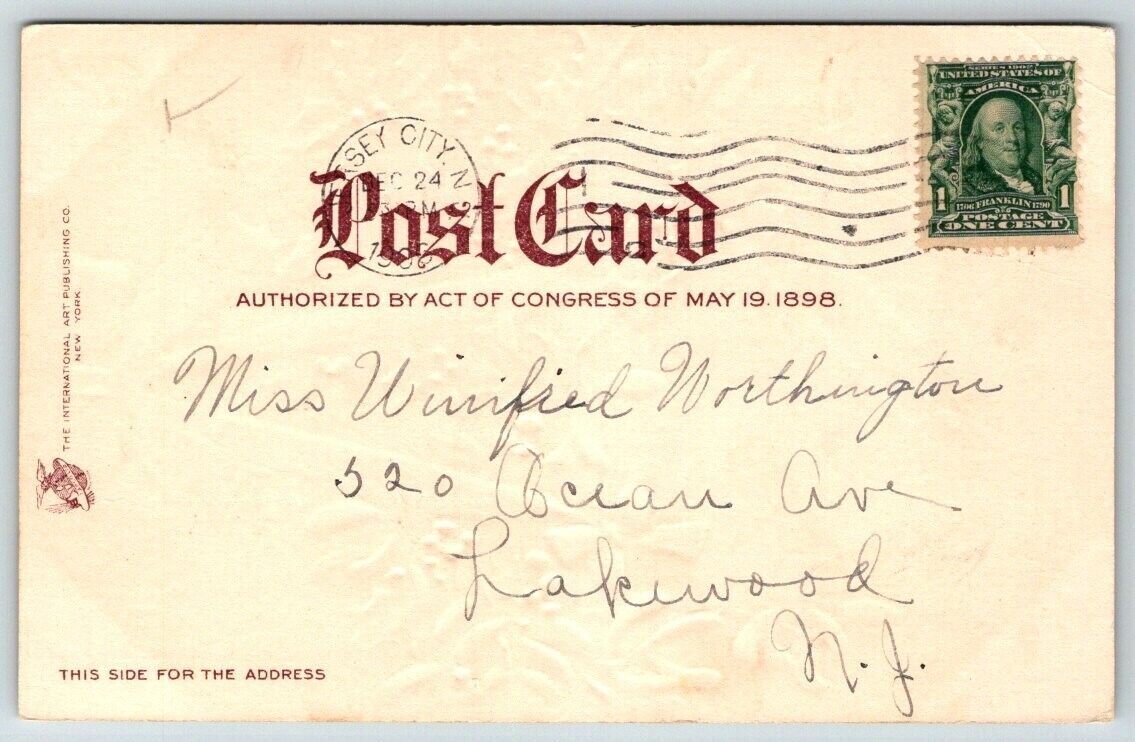 SERIES 1902
UNITED STATES OF
AMERICA
1 1
1706 FRANKLIN 1790
POSTAGE
ONE CENT
JERSEY CITY, N
DEC 24
PM
Post Card
AUTHORIZED BY ACT OF CONGRESS OF MAY 19. 1898.
THE INTERNATIONAL ART PUBLISHING CO.
NEW YORK
Miss Winifred Worthington
520 Ocean Ave
Lakewood
N. J.
THIS SIDE FOR THE ADDRESS